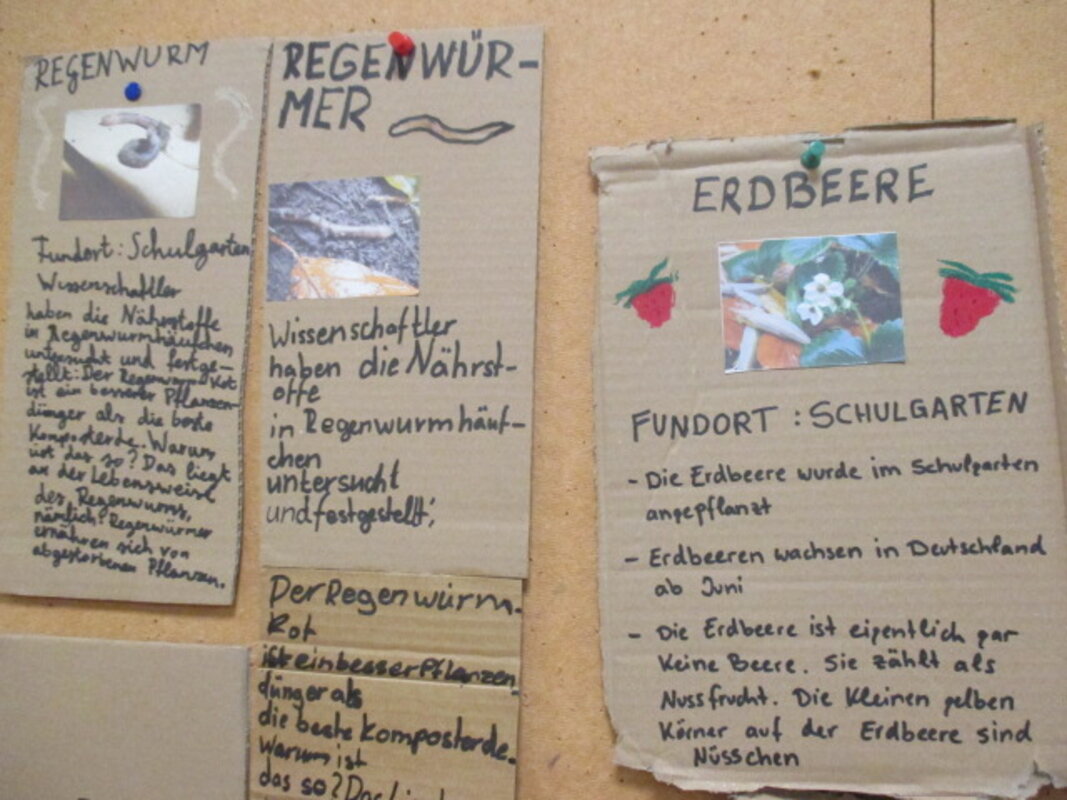 REGENWURM
Fundort: Schulgarten
Wissenschaftler
haben die Nährstoffe
in Regenwurmhäufchen
untersucht und festge-
stellt: Der Regenwurm Kot
ist ein besserer Pflanzen-
dünger als die beste
Komposterde. Warum
ist das so? Das liegt
an der Lebensweise
des Regenwurms,
nämlich: Regenwürmer
ernähren sich von
abgestorbenen Pflanzen.
REGENWÜR-
MER
Wissenschaftler
haben die Nährst-
offe
in Regenwurmhäuf-
chen
untersucht
und festgestellt;
Der Regenwürm-
Kot
ist ein besser Pflanzen-
dünger als
die beste Komposterde.
Warum ist
das so? Das
ERDBEERE
FUNDORT : SCHULGARTEN
- Die Erdbeere wurde im Schulgarten
angepflanzt
- Erdbeeren wachsen in Deutschland
ab Juni
- Die Erdbeere ist eigentlich gar
keine Beere. Sie zählt als
Nussfrucht. Die kleinen gelben
Körner auf der Erdbeere sind
Nüsschen